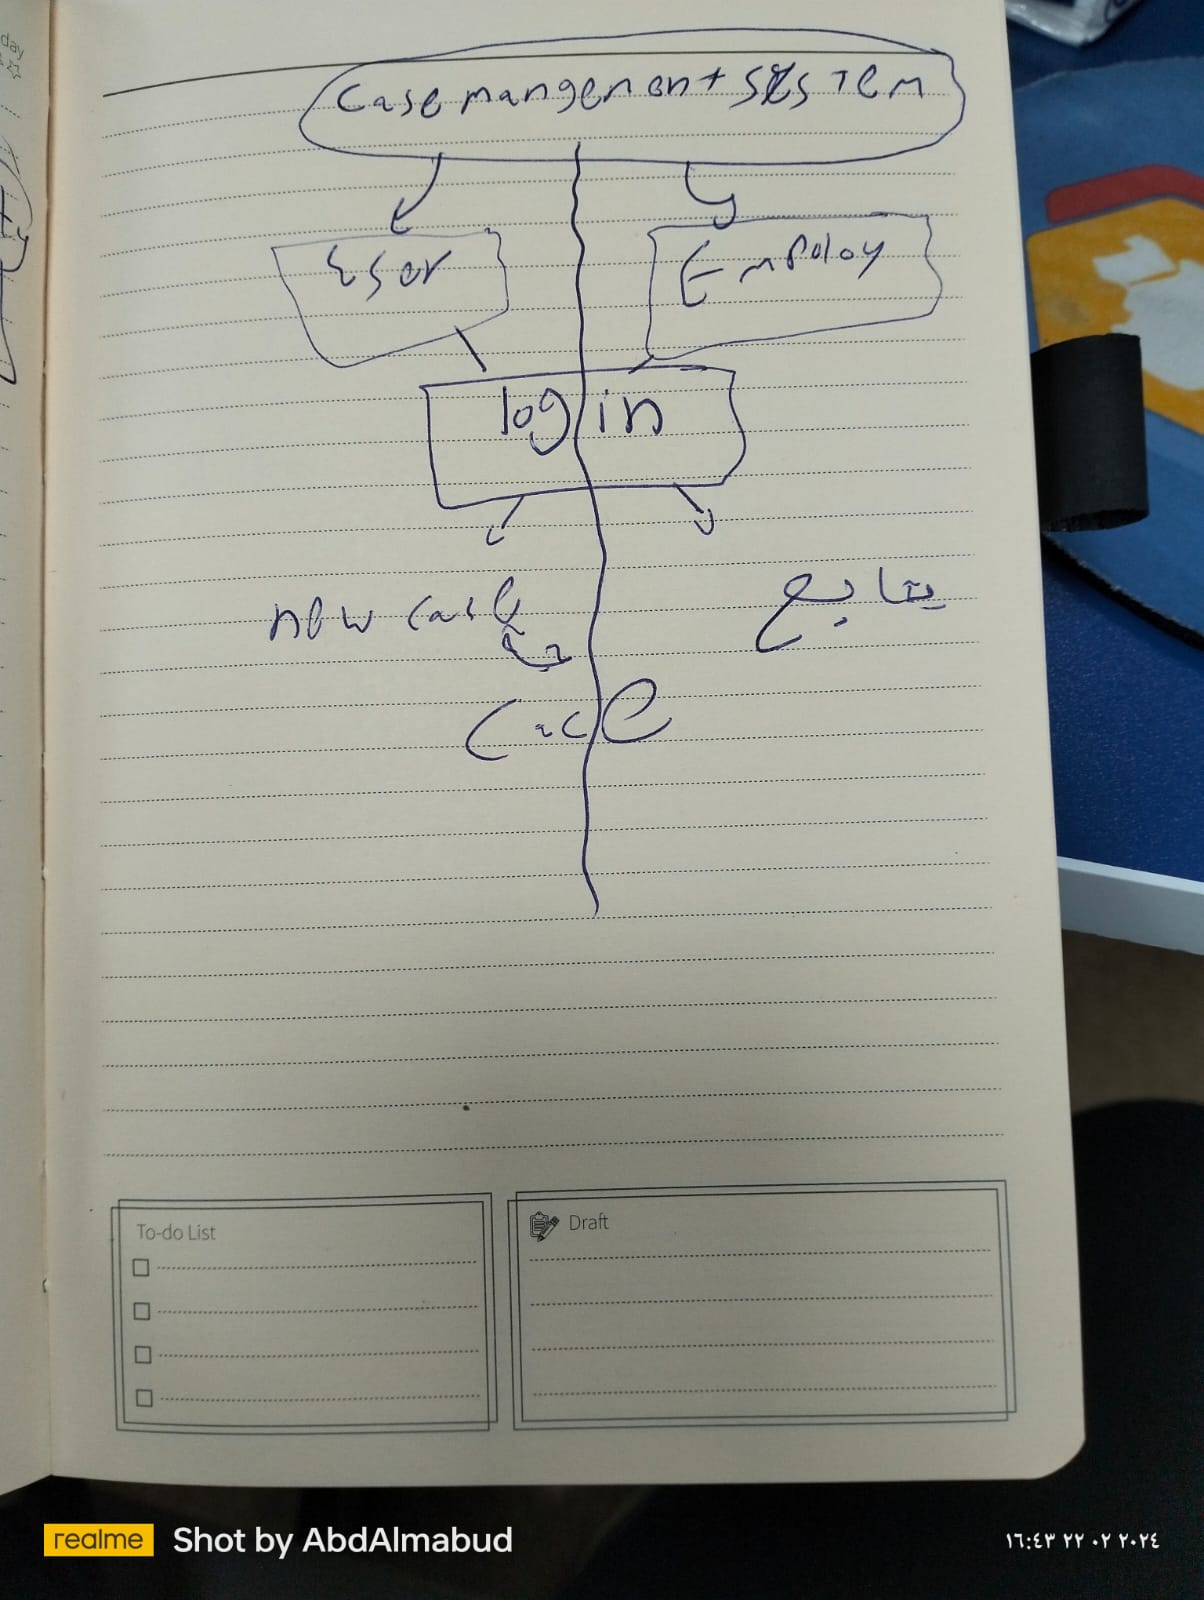 day
Case mangement system
Eser
Employ
log in
new case
يتابع
case
To-do List
Draft
realme
Shot by AbdAlmabud
١٦:٤٣ ٢٢ ٠٢ ٢٠٢٤